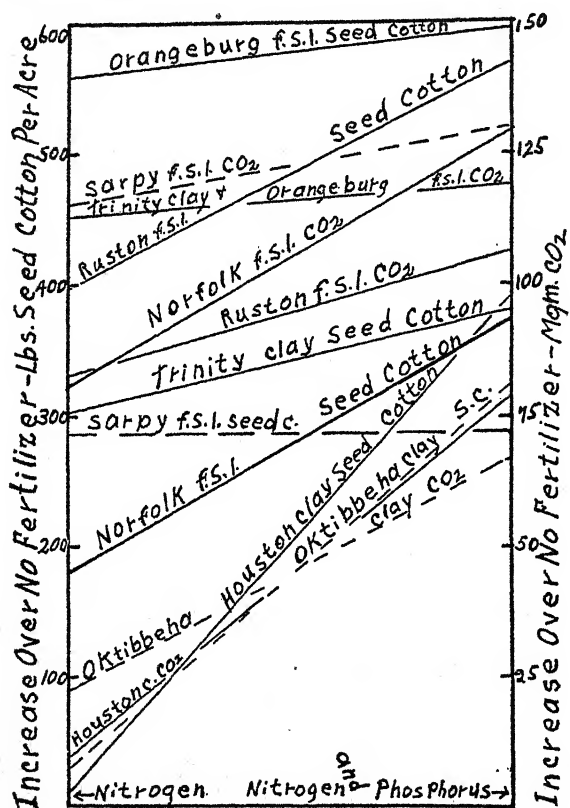 Increase Over No Fertilizer-Lbs. Seed Cotton Per Acre
600
500
400
300
200
100
Orangeburg f.s.l. Seed Cotton
Seed Cotton
Sarpy f.s.l. CO2
Trinity clay &
Orangeburg f.s.l. CO2
Ruston f.s.l.
Norfolk f.s.l. CO2
Ruston f.s.l. CO2
Trinity clay Seed Cotton
Seed Cotton
Sarpy f.s.l. seed c.
Norfolk f.s.l.
Houston clay Seed Cotton
S.C.
Oktibbeha clay
clay CO2
Oktibbeha
Houston c. CO2
←Nitrogen
Nitrogen and Phosphorus→
150
125
100
75
50
25
Increase Over No Fertilizer-Mgm. CO2